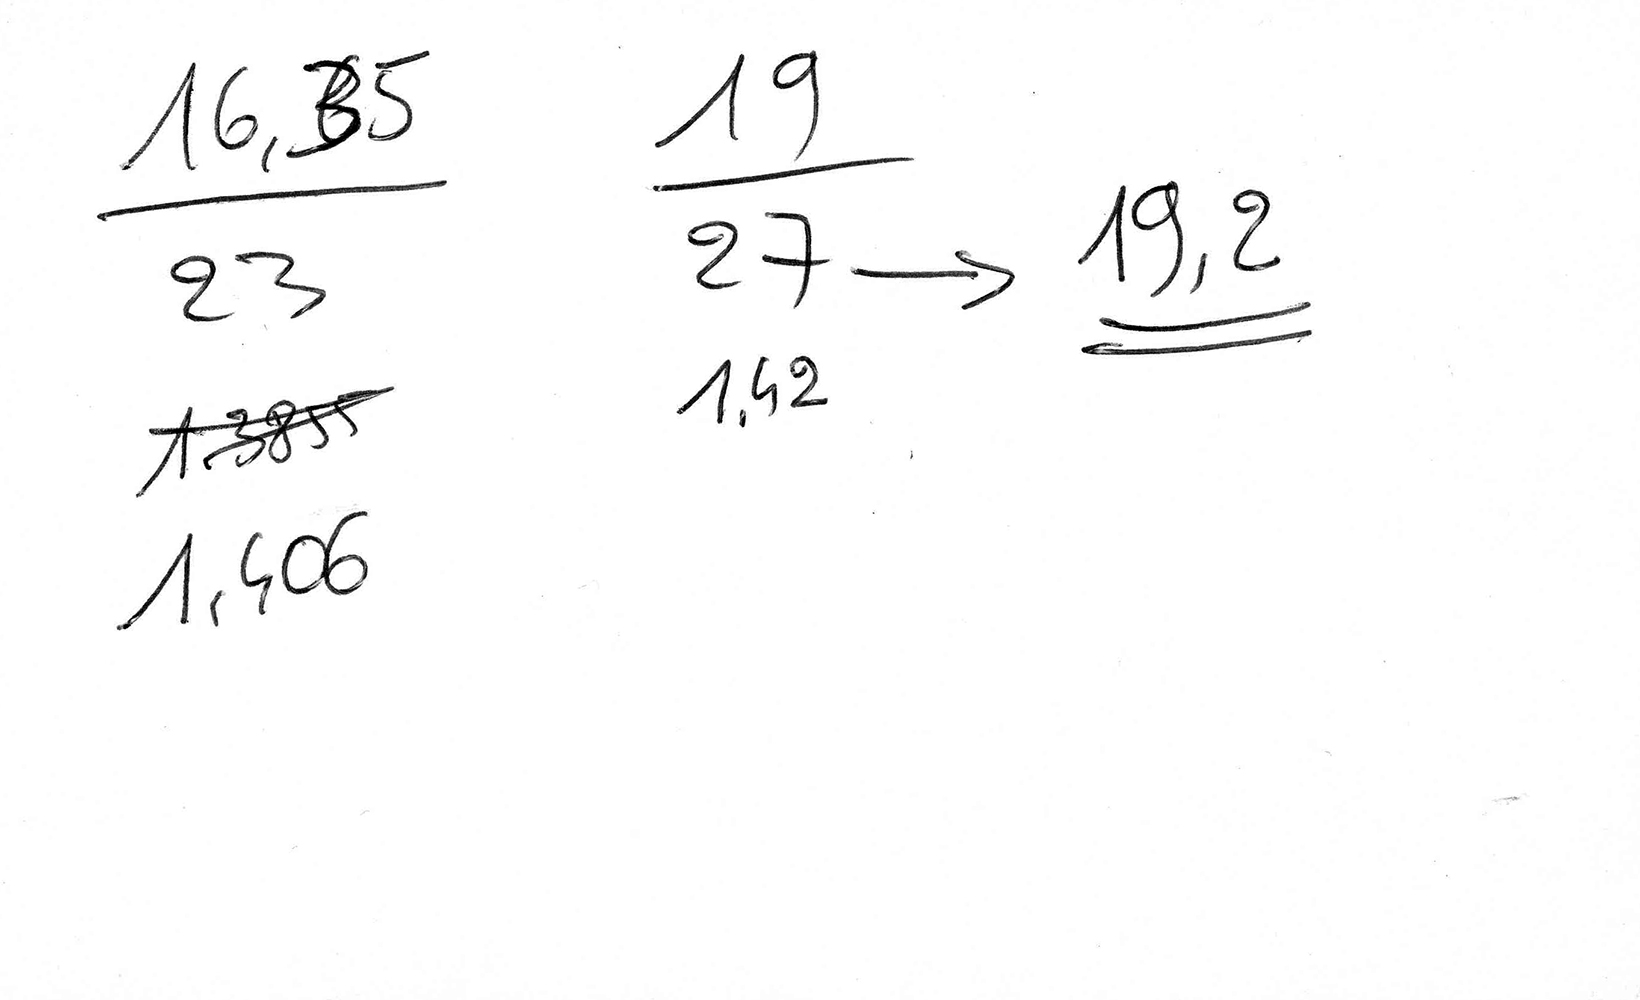 16,35
23
1,3855
1,406
19
27 → 19,2
1,42